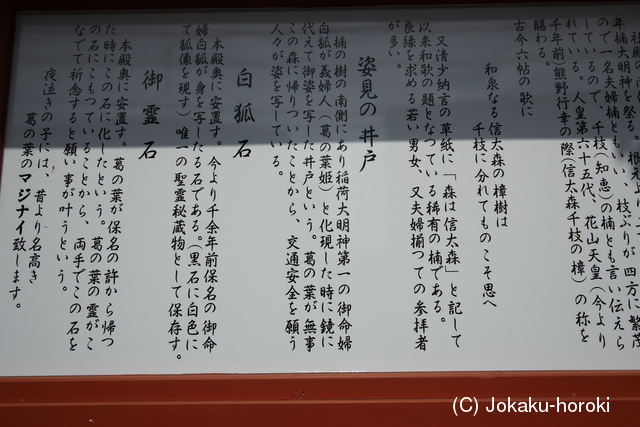 年楠大明神を祭る。根元より二
ので一名夫婦楠ともいい、枝ぶりが四方に繁茂
しているので、千枝(知恵)の楠とも言い伝えら
れている。人皇第六十五代、花山天皇(今より
千年前)熊野行幸の際(信太森千枝の樟)の称を
賜わる。
古今六帖の歌に
和泉なる信太森の樟樹は
千枝に分れてものこそ思へ
又清少納言の草紙に「森は信太森」と記して
以来和歌の題となつている稀有の楠である。
良縁を求める若い男女、又夫婦揃つての参拝者
が多い。
姿見の井戸
楠の樹の南側にあり稲荷大明神第一の御命婦
白狐が義婦人(葛の葉姫)と化現した時に鏡に
代えて御姿を写した井戸という。葛の葉が無事
この森に帰りついたことから、交通安全を願う
人々が姿を写している。
白狐石
本殿奥に安置す。今より千余年前保名の御命
婦白狐が身を写したる石である。(黒石に白色に
て狐像を現す)唯一の聖霊秘蔵物として保存す。
御霊石
本殿奥に安置す。葛の葉が保名の許から帰つ
た時にこの石に化したという。葛の葉の霊がこ
の石にこもつていることから、両手でこの石を
なでて祈念すると願い事が叶うという。
夜泣きの子には、昔より名高き
葛の葉のマジナイ致します。
(C) Jokaku-horoki